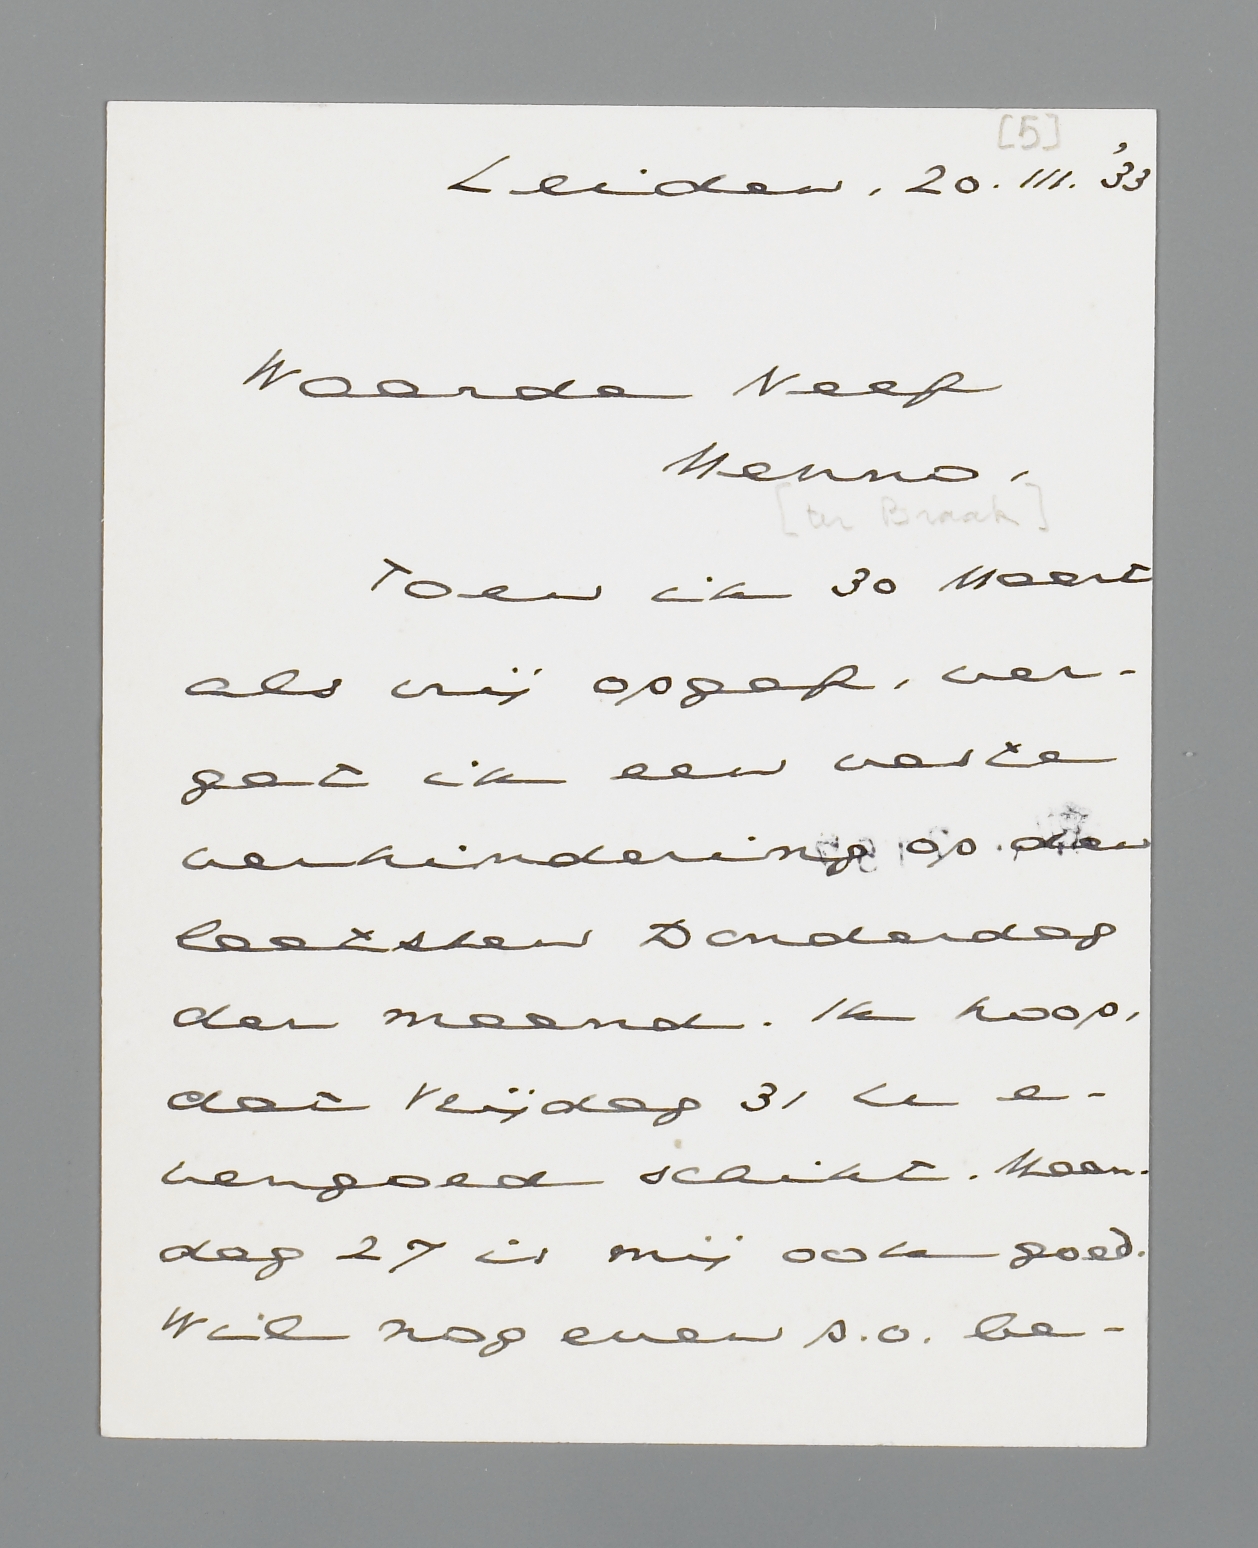 [5]
Leiden, 20.III.'33
Waarde Neef
Menno,
[ter Braak]
Toen ik 30 Maart
als vrij opgaf, ver-
gat ik een vaste
verhindering op den
laatsten Donderdag
der maand. Ik hoop,
dat Vrijdag 31 U e-
vengoed schikt. Maan-
dag 27 is mij ook goed.
Wil nog even p.o. be-